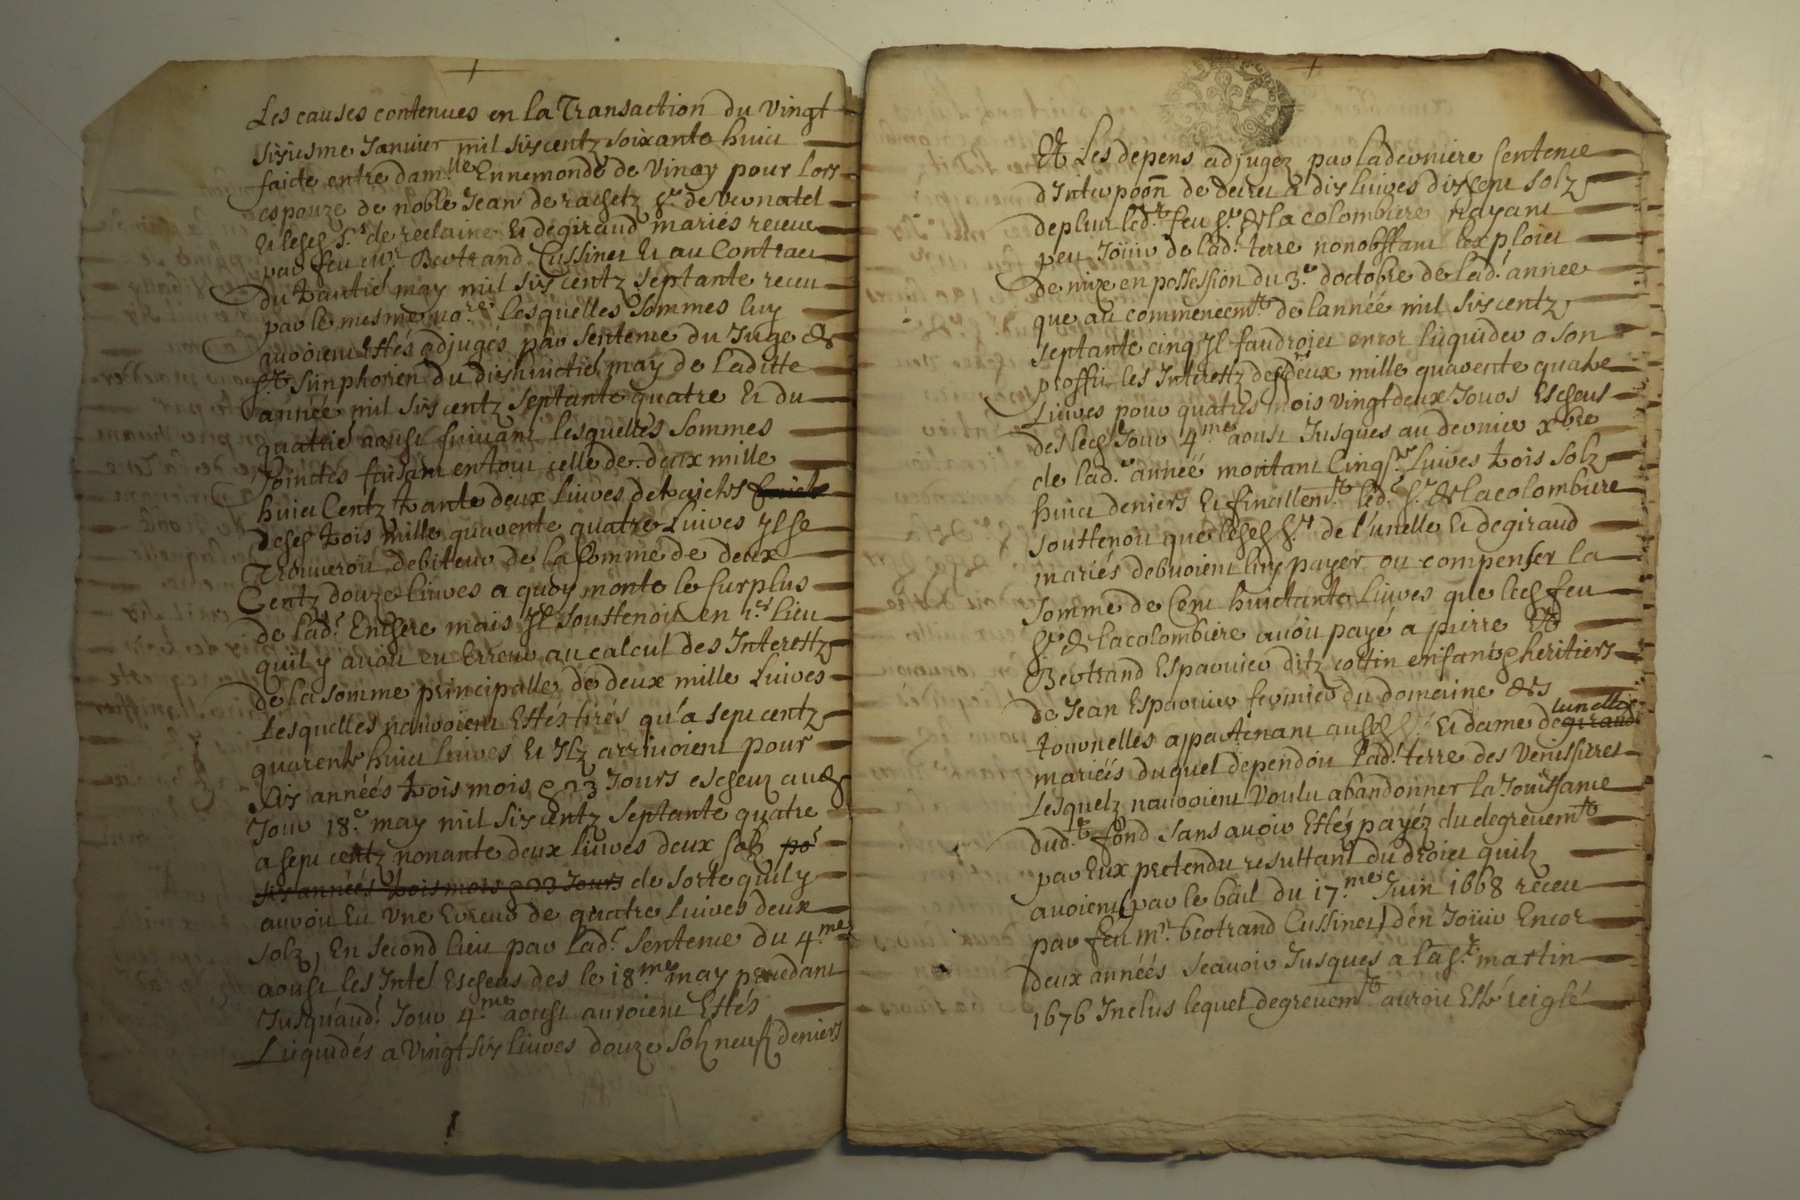 Les causes contenues en la Transaction du Vingt
sixiesme Januier mil six centz soixante huict
faicte entre dam.lle Ennemonde de Vinay pour lors
espouze de noble Jean de rachetz s.r de vernatel
Et lesd s.rs de reclaine Et degiraud mariés receue
par feu m.r Bertrand Cussinet Et au Contract
du may mil six centz septante receu
par le mesme no.re lesquelles sommes luy
auroient Estés adjugés par sentence du Juge de
S.t Simphorien du dixhuictie.e may de Laditte
année mil six centz septante quatre Et du
quatrie.e aoust suiuant lesquelles sommes
Jointes faisant en tout celle de deux mille
huict Centz trante deux Liures
desd trois mille quarente quatre Liures Il se
Trouueroit debiteur de la somme de deux
Centz douze Liures a quoy monte le surplus
de lad.e Enchere mais Il soustenoit en 1.er Lieu
quil y auoit eu Erreur au calcul des Interestz
de la somme principalle de deux mille Liures
Lesquelles nauroient Estés tirés qu'a sept centz
quarente huict Liures Et Ilz arriuoient pour
six années trois mois & 23 Jours escheuz aud
Jour 18.e may mil six centz septante quatre
a sept centz nonante deux liures deux solz po.r
six années trois mois & 23 Jours de sorte quil y
auroit Eu Vne Erreur de quatre Liures deux
solz, En second lieu par Lad.e sentence du 4.me
aoust les Inte.tz Escheus des le 18.me may precedant
Jusquaud.t Jour 4.me aoust auroient Estés
Liquidés a Vingt six liures douze solz neuf deniers
Et Les depens adjugez par la derniere sentence
d'Interpoōn de decret a dix liures dix sept solz
de plus led.t feu s.r de la colombiere nayant
peu Jouir de lad.e terre nonobstant lexploict
de mise en possession du 3.e doctobre de lad.e annee
que au commencem.t de lannéé mil six centz
septante cinq Il faudroict encor liquider a son
proffit les Interestz desd deux mille quarente quatre
Liures pour quatres mois vingtdeux Jours Escheus
des led Jour 4.me aoust Jusques au dernier xbre
de lad.e annéé montant Cinq.te Liures trois solz
huict deniers Et finallem.t led.t s.r de lacolombiere
soustenoit que lesd s.rs de l'unelle Et degiraud
mariés debuoient luy payer ou compenser la
somme de Cent huictante Liures que led feu
s.r de lacolombiere auoit payé a pierre &
Bertrand Esparuier ditz cottin enfans & heritiers
de Jean Esparuier fermier du domaine des
tournelles appartenant ausd s.r Et dame de giraud lunelle
mariéés duquel dependoit Lad.e terre des Venissieres
Lesquelz nauroient Voulu abandonner la Jouissance
dud.t fond sans auoir Estés payéz du degreuem.t
par Eux pretendu resultant du droict quilz
auoient (par le bail du 17.me Juin 1668 receu
par feu m.r bertrand Cussinet) d'en Jouir Encor
deux années scauoir Jusques a la s.t martin
1676 Inclus lequel degreuem.t auroit Esté reiglé